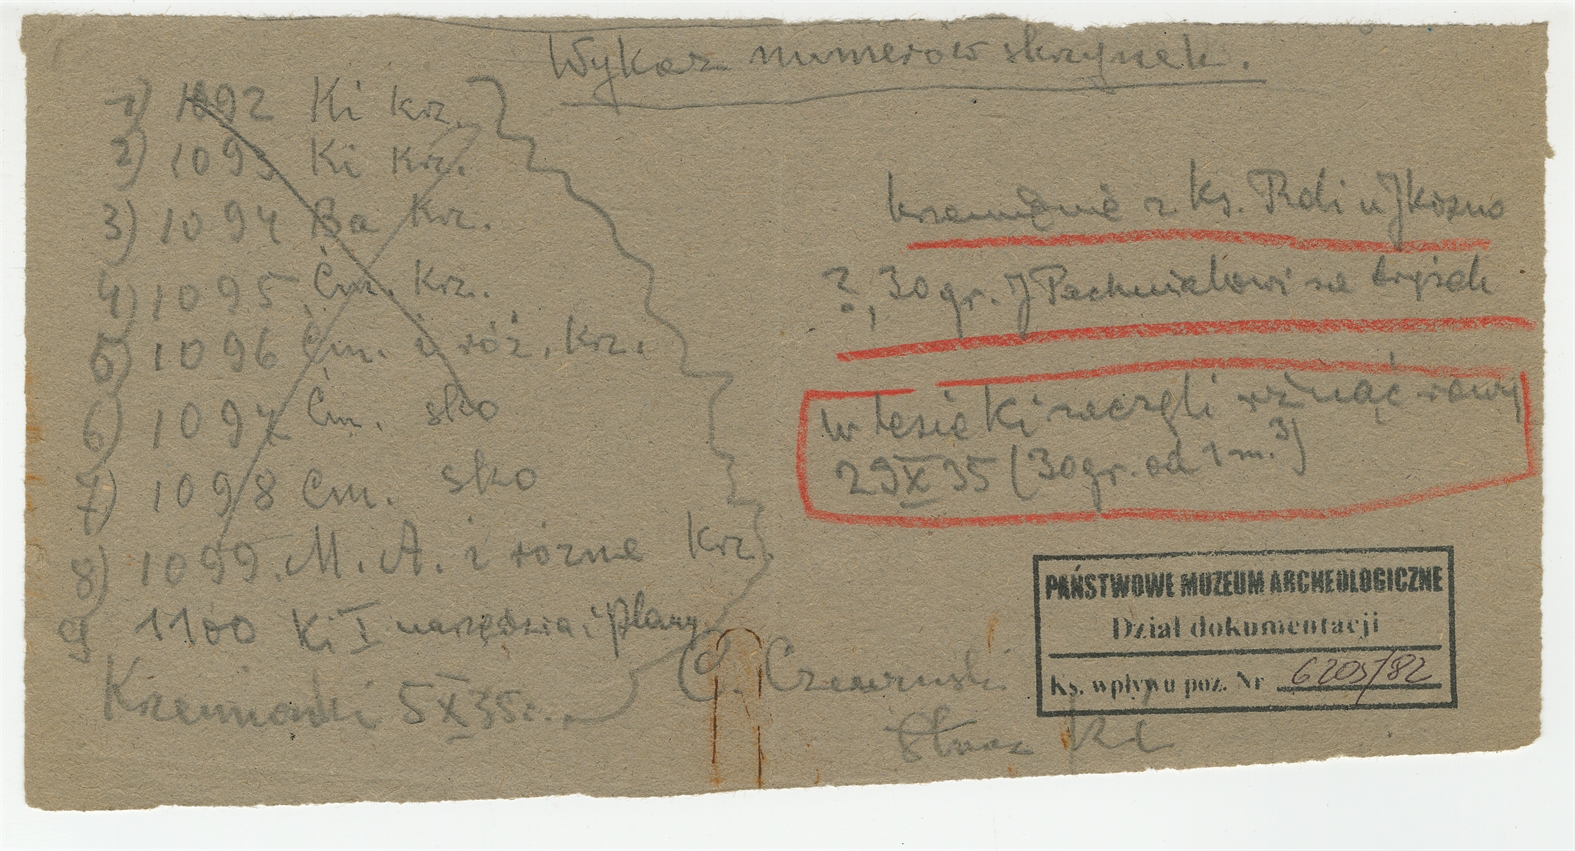 Wykaz numerów skrzynek.
1) 1092 Ki krz.
2) 1093 Ki krz.
3) 1094 Ba krz.
4) 1095 Ćm. krz.
5) 1096 Ćm. i róż. krz.
6) 1097 Ćm. sko
7) 1098 Ćm. sko
8) 1099. M. A. i różne krz.
9) 1100 Ki I narzędzia i plany
Krzemionki 5 X 35 r.
krzemienie z ks. Rdi u
?, 30 gr. J na
w lesie Ki zaczęli rżnąć rowy
29 X 35 (30 gr. od 1 m.³)
Straż Ki
PAŃSTWOWE MUZEUM ARCHEOLOGICZNE
Dział dokumentacji
Ks. wpływu poz. Nr 6205/82